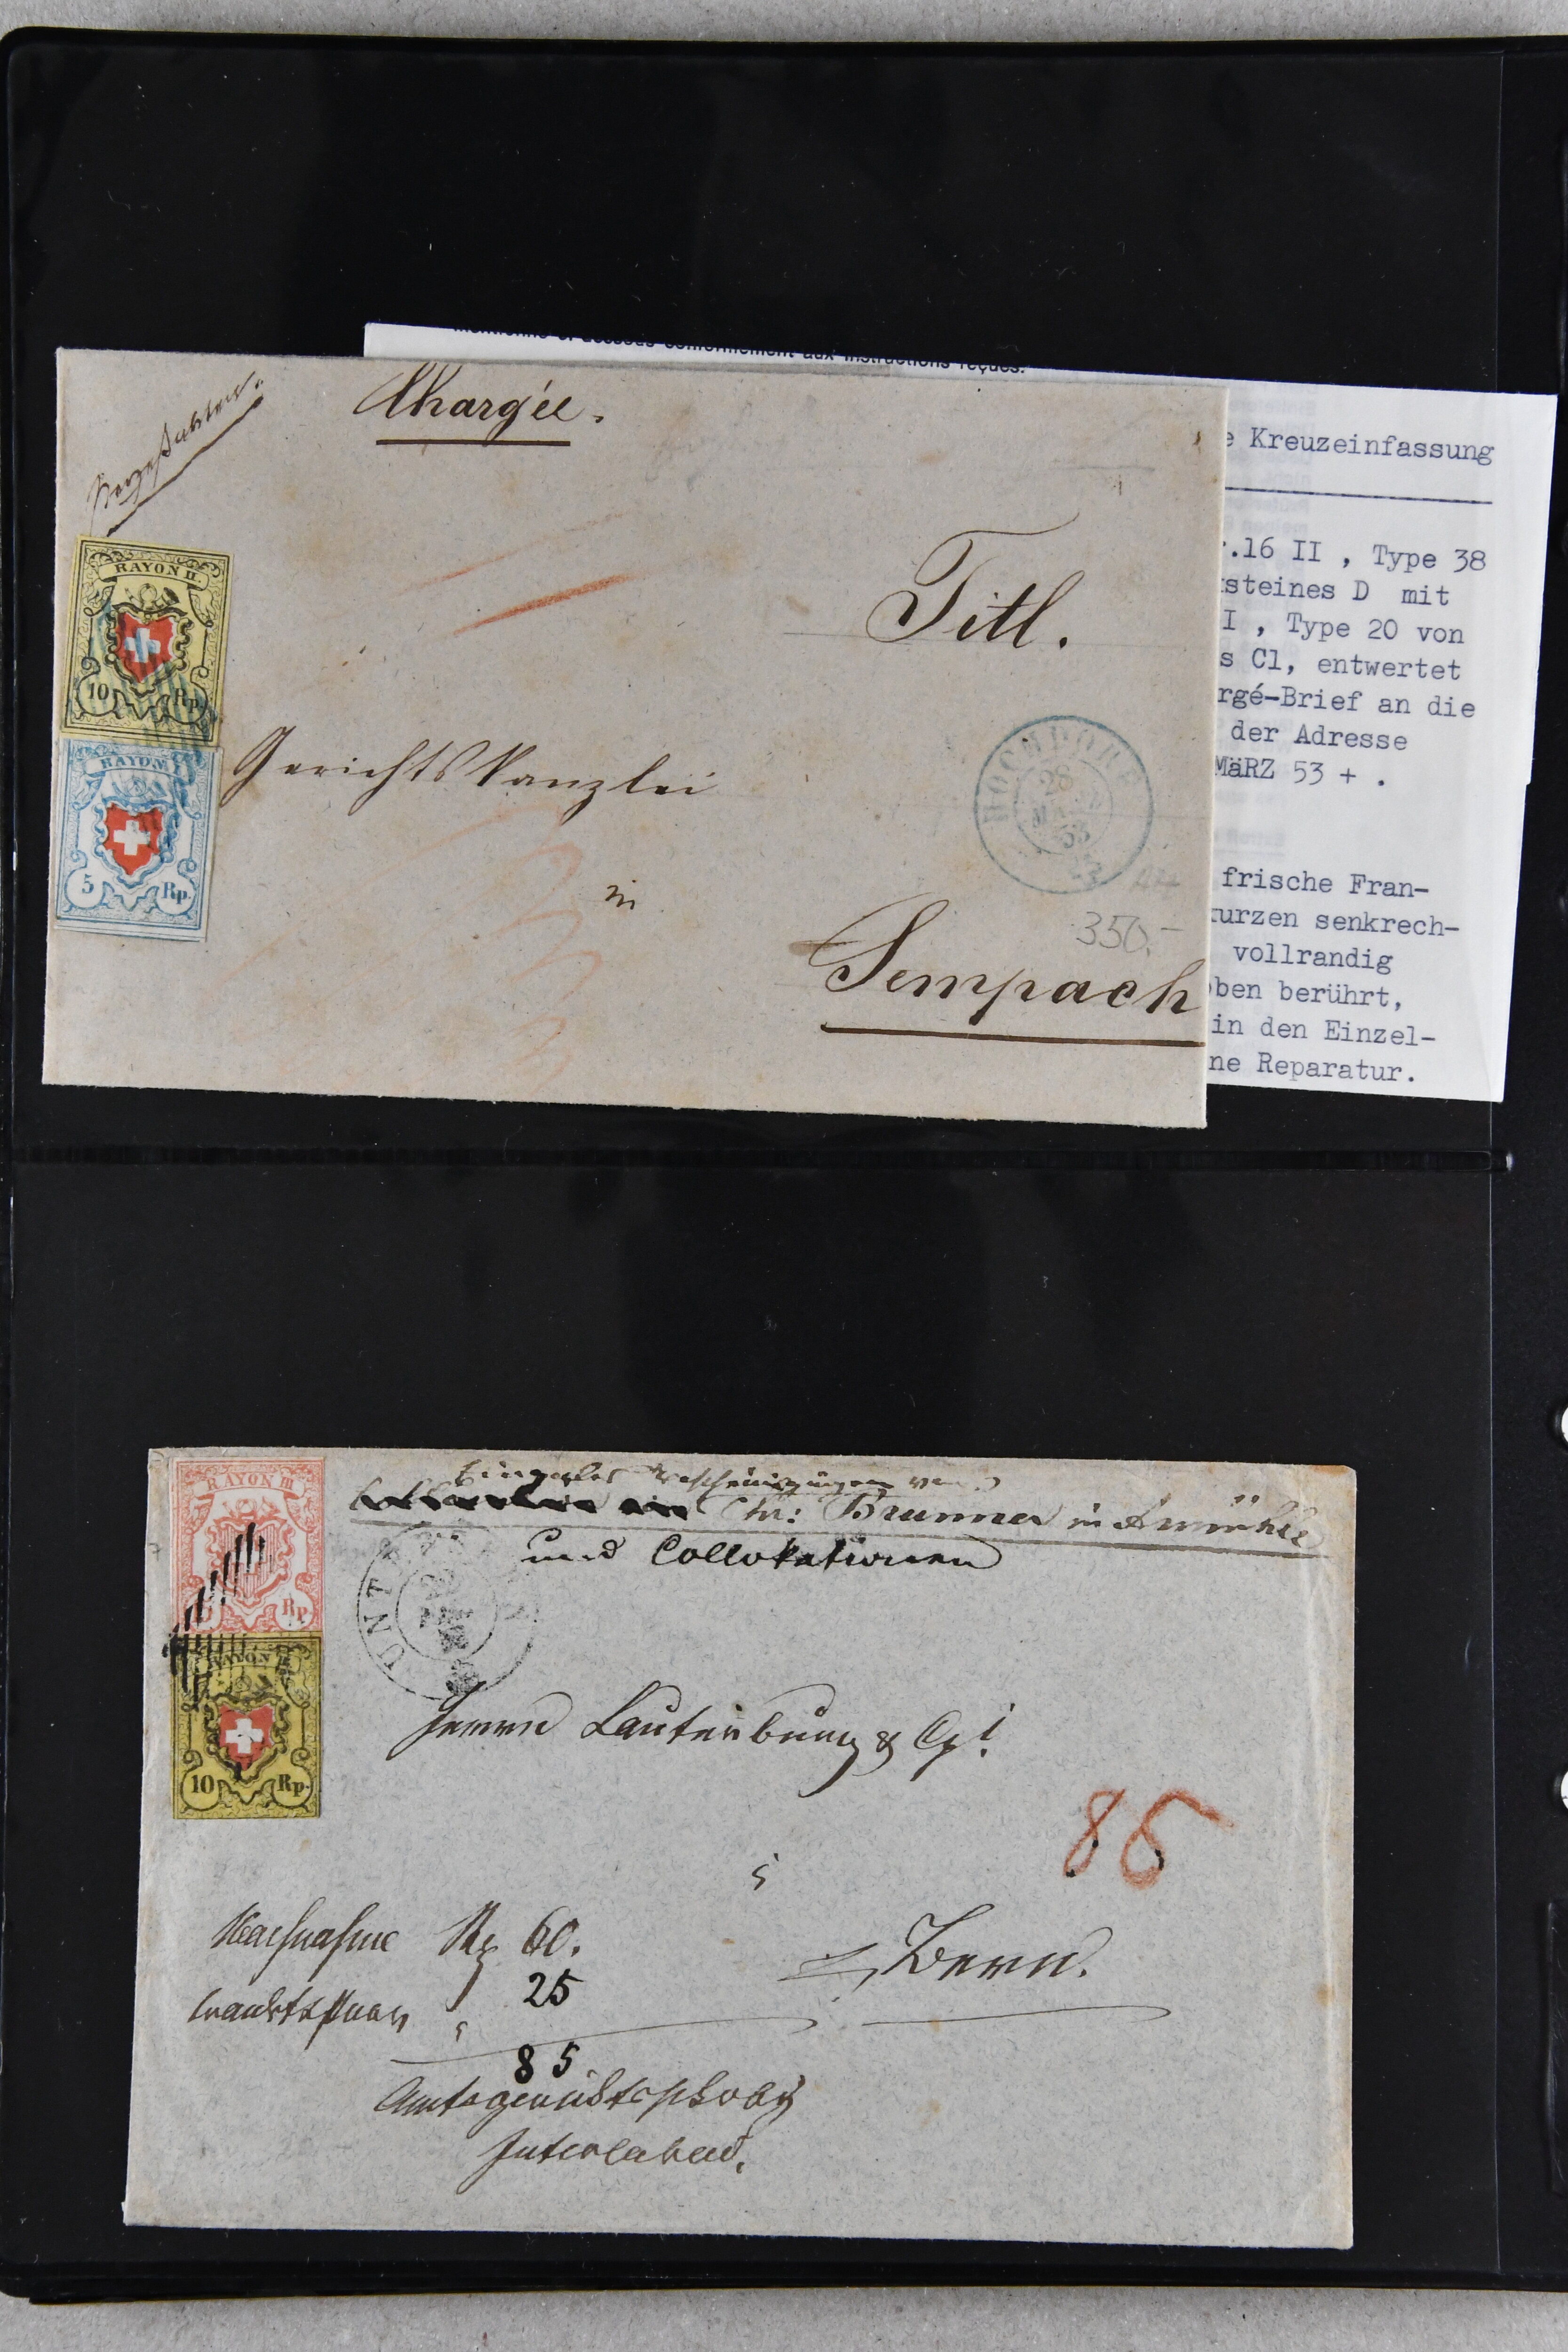 mentionné ci-dessous conformément aux instructions reçues.
Chargée.
e Kreuzeinfassung
r.16 II , Type 38
steines D mit
I , Type 20 von
s C1, entwertet
rgé-Brief an die
der Adresse
MäRZ 53 + .
frische Fran-
kurzen senkrech-
vollrandig
oben berührt,
in den Einzel-
ne Reparatur.
RAYON II.
10 Rp.
RAYON I
5 Rp.
Titl.
Gerichtskanzlei
in
Sempach
28
53
350.-
RAYON III
Rp
RAYON II
10 Rp.
Bescheinigungen von
Chr: Brunner in
und Collokationen
UNT
Herrn Lauterburg & Cp!
85
Nachnahme Rp 60.
25
85
Bern.
Interlaken.